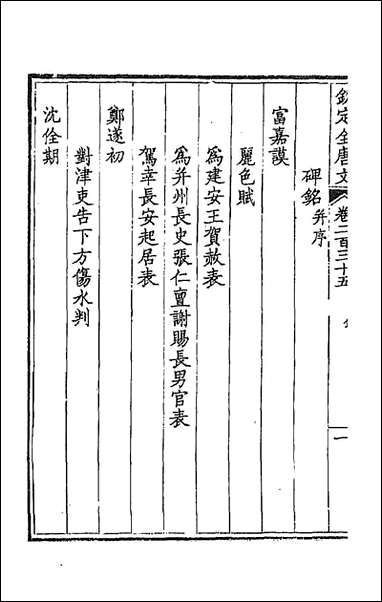 欽定全唐文 卷二百三十五 一
碑銘并序
富嘉謨
麗色賦
為建安王賀赦表
為并州長史張仁亶謝賜長男官表
駕幸長安起居表
鄭遂初
對津吏告下方傷水判
沈佺期